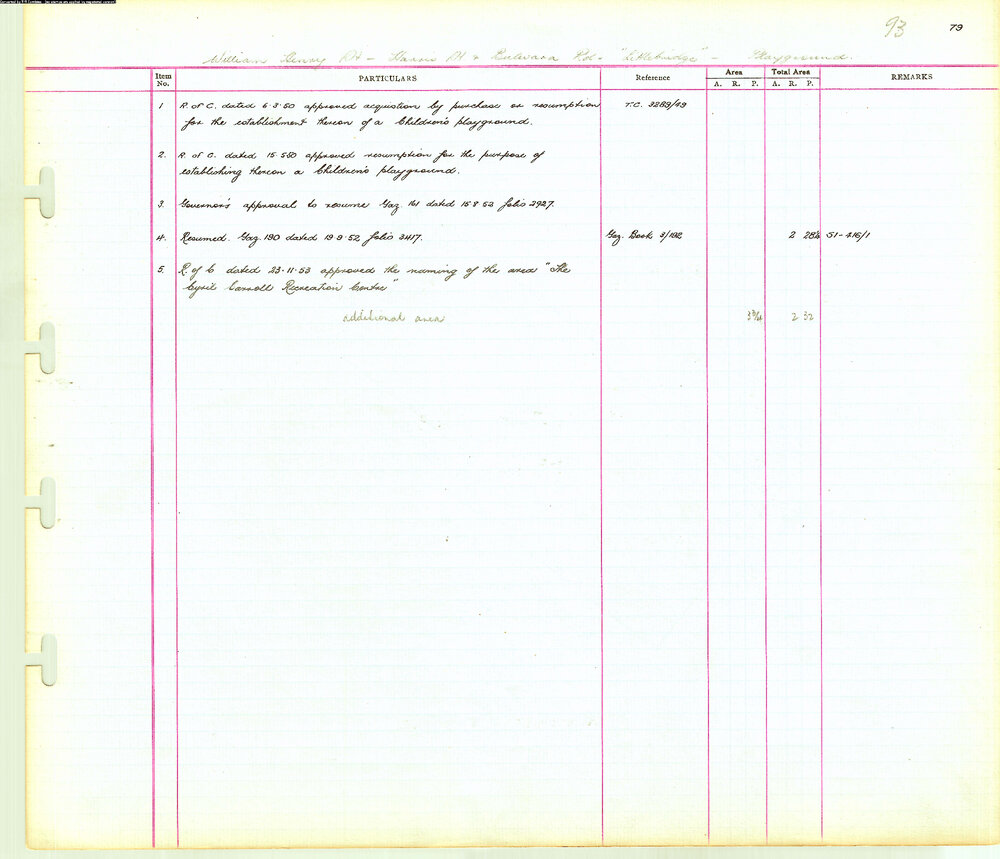 93
79
William Henry St - Harris St & Bulwara Rd - " " - Playground.
Item No.
PARTICULARS
Reference
Area
Total Area
REMARKS
A. R. P. A. R. P.
1 R. of C. dated 6.3.50 approved acquistion by purchase or resumption T.C. 3289/49
for the establishment thereon of a Children's playground.
2. R. of C. dated 15.5.50 approved resumption for the purpose of
establishing thereon a Children's playground.
3. Governor's approval to resume Gaz. 161 dated 15.8.52 folio 2927.
4. Resumed. Gaz. 190 dated 19.9.52 folio 3417. Gaz. Book 3/192 2 28¼ S1-416/1
5. R of C dated 23.11.53 approved the naming of the area "The
Cyril Carroll Recreation Centre"
additional area 3¾ 2 32